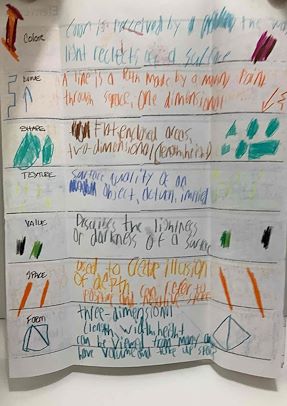 Color
Color is perceived by a the way
light reflects off a surface
LINE
A line is a Path made by a moving Point
through space, one dimensional
SHAPE
Flat enclosed areas,
two-dimensional (length height)
TEXTURE
surface quality of an
object, actual, implied
VALUE
Describes the lightness
or darkness of a surface
SPACE
used to create illusion
of depth
positive and negative space
Form
three-dimensional
(length width height
can be viewed from many
have volume and take up space